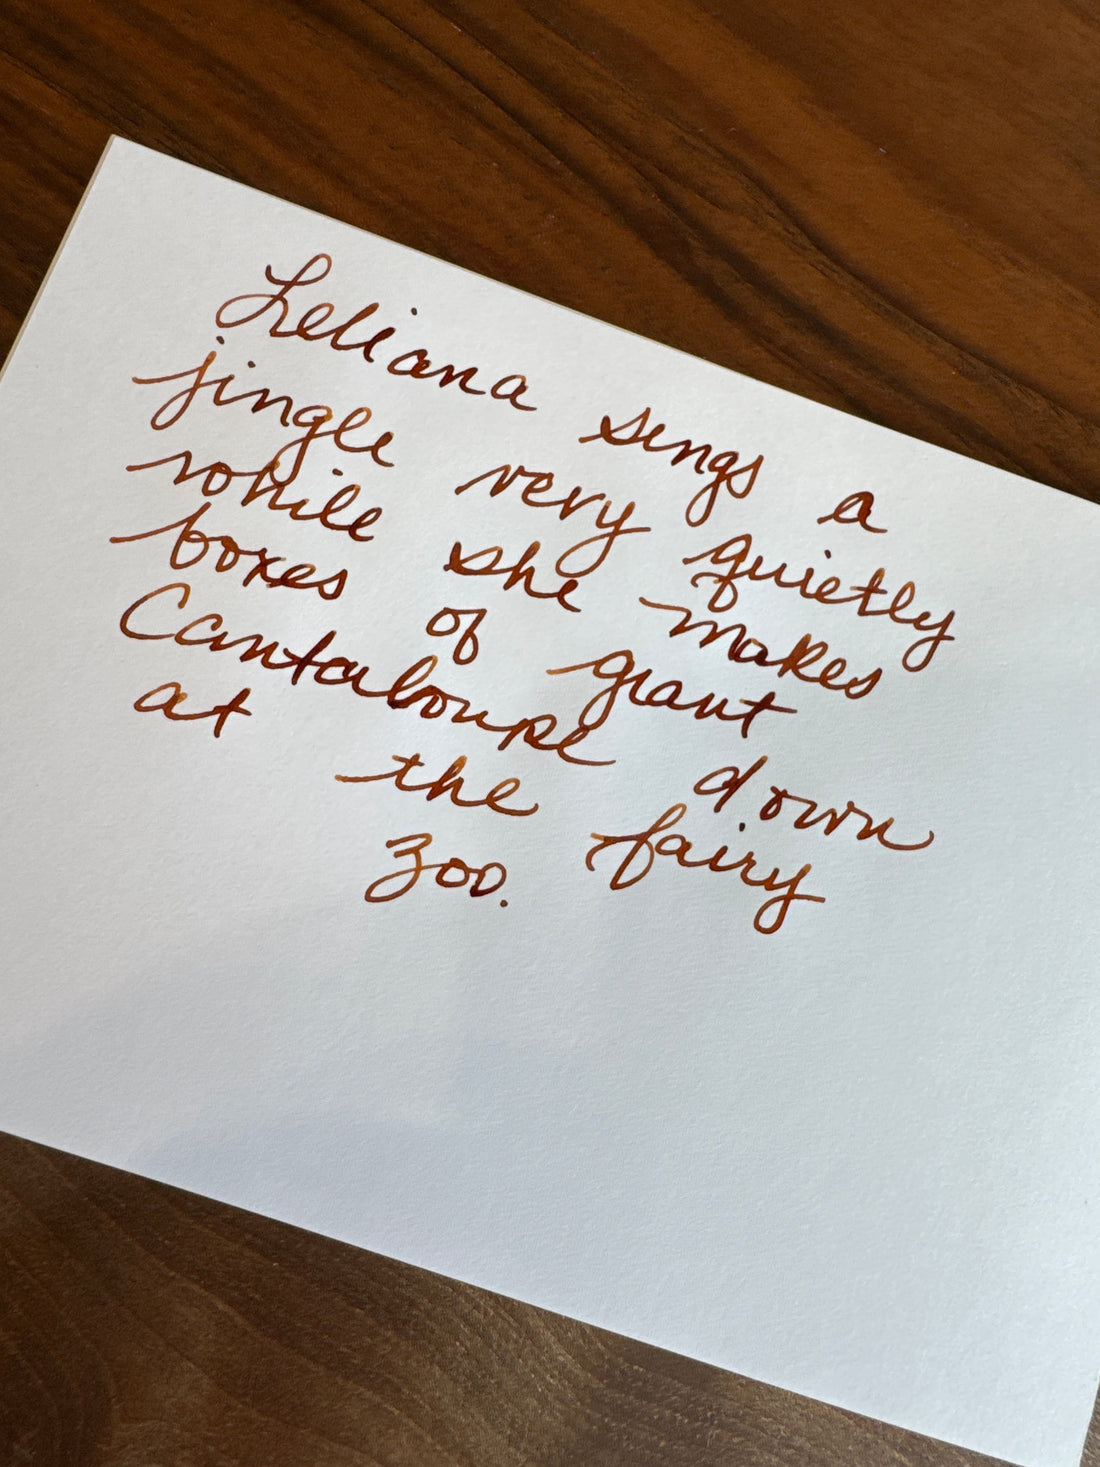 Leliana sings a
jingle very quietly
while she makes
boxes of giant
Cantaloupe down
at the fairy
zoo.